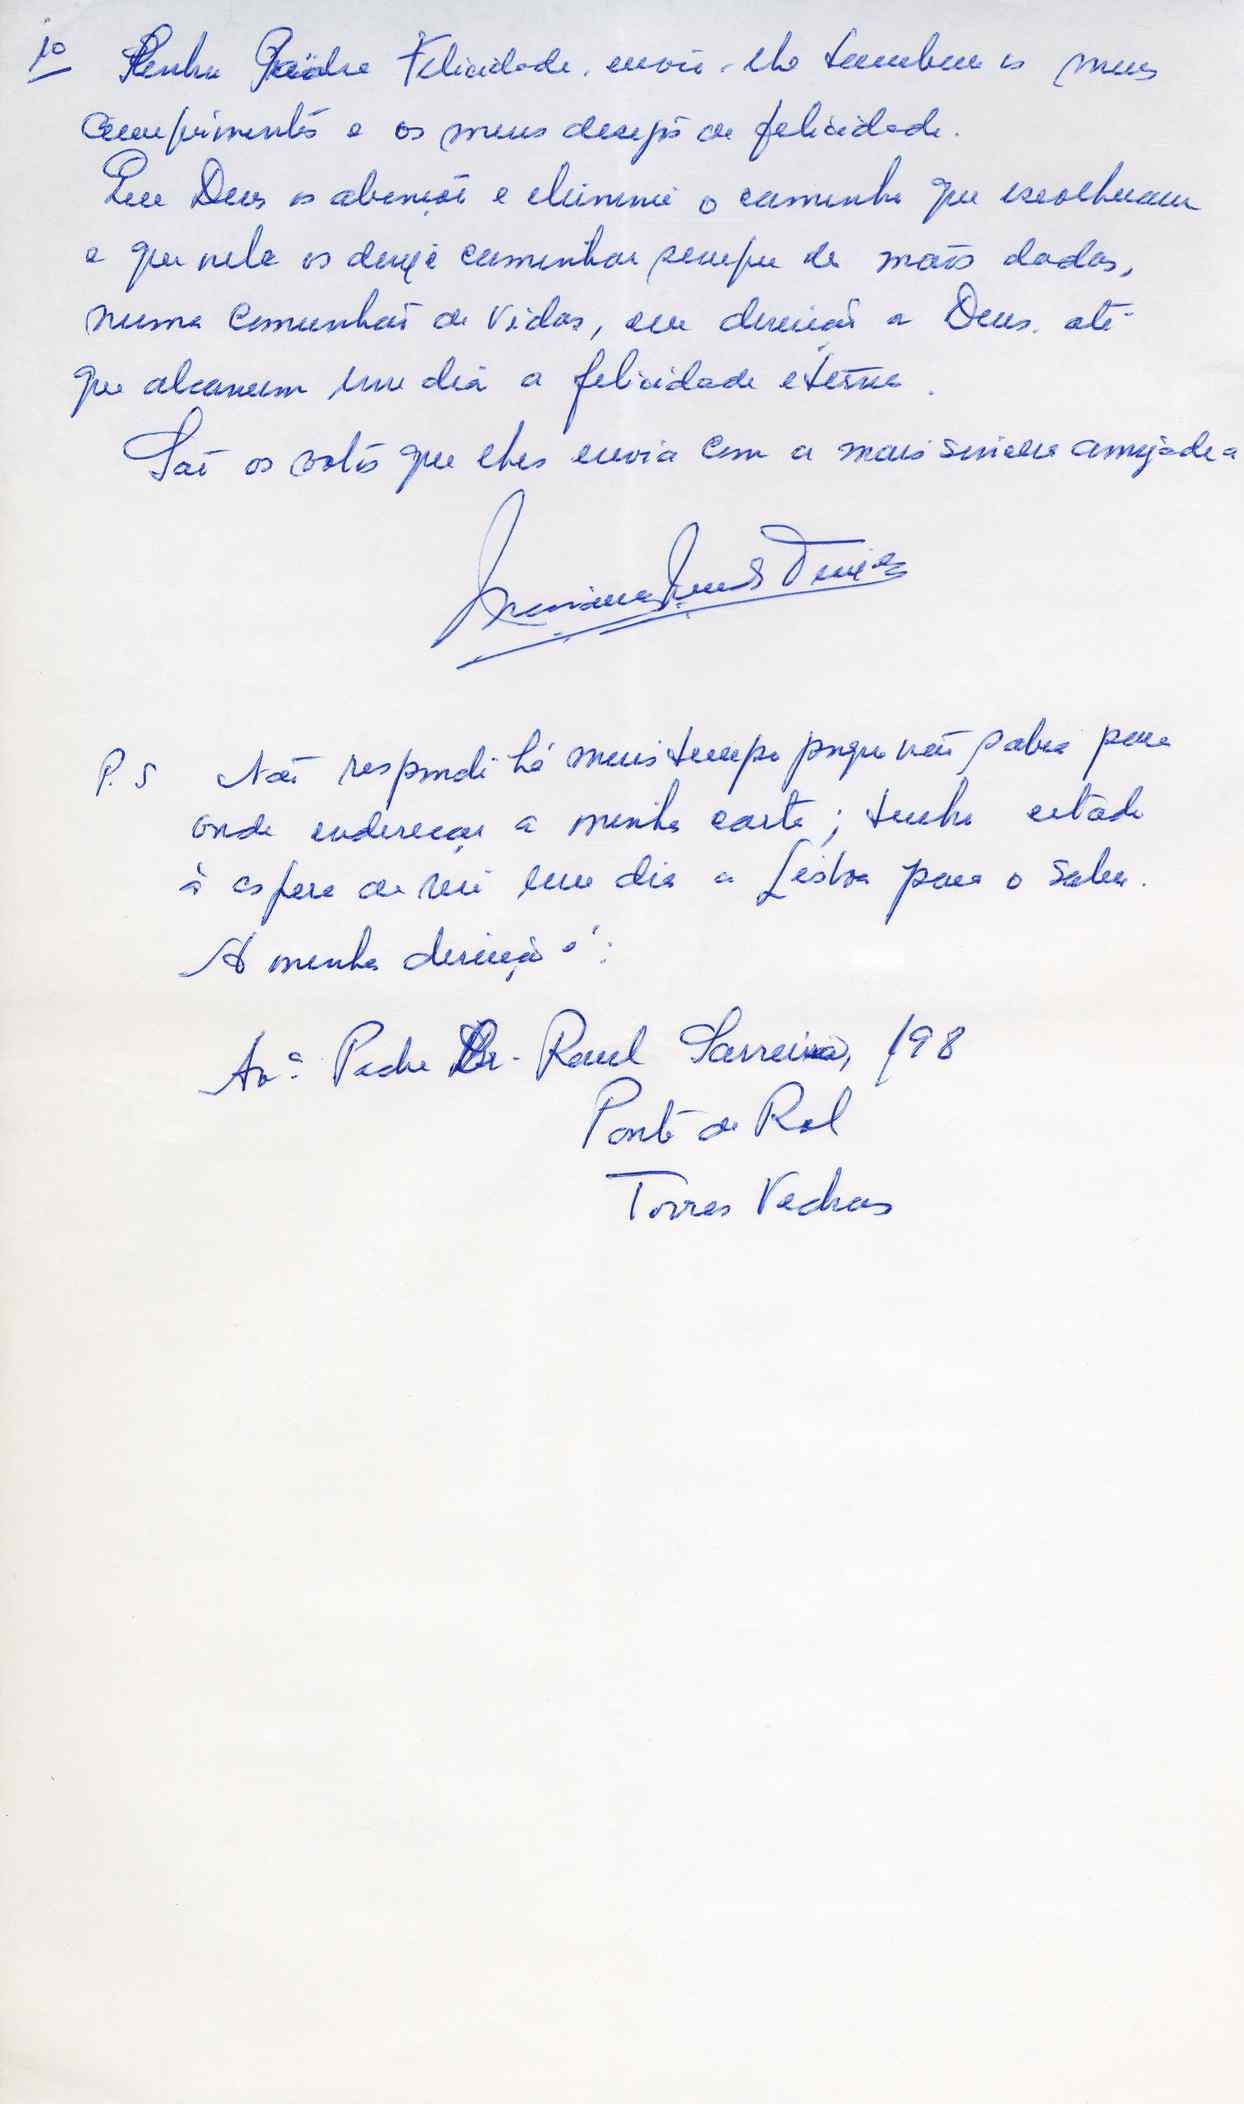 1º Padre Felicidade, envio-lhe tambem os meus
cumprimentos e os meus desejos de felicidade.
Que Deus os abençoi e elumine o caminho que escolheram
e que nele os deseje caminhar sempre de mãos dadas,
numa comunhão de vidas, em direcção a Deus, até
que alcancem um dia a felicidade eterna.
São os votos que lhes envia com a mais sincera amizade a
P. S Não respondi há mais tempo porque não sabia para
onde endereçar a minha carta; tenho estado
à espera de ir um dia a Lisboa para o saber.
A minha direcção é:
Avª. Padre Dr. Raul Sarreira, 198
Ponte de Rol
Torres Vedras